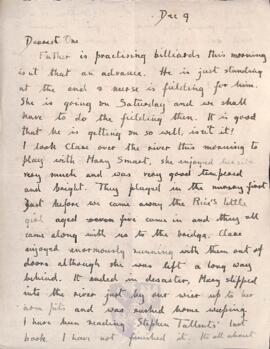 Dec 9
Dearest One
Father is practising billiards this morning
isnt that an advance. He is just standing
at the end & nurse is fielding for him.
She is going on Saturday and we shall
have to do the fielding then. It is good
that he is getting on so well, isnt it!
I took Clare over the river this morning to
play with Mary Smart, she enjoyed herself
very much and was very good tempered
and bright. They played in the nursery first
Just before we came away the little
girl aged seven five came in and they all
came along with us to the bridge. Clare
enjoyed enormously running with them out of
doors although she was left a long way
behind. It ended in disaster, Mary slipped
into the river just by our wier up to her
arm pits and was rushed home weeping.
I have been reading Stephen Tallents' last
book. I have not finished it. Its all about